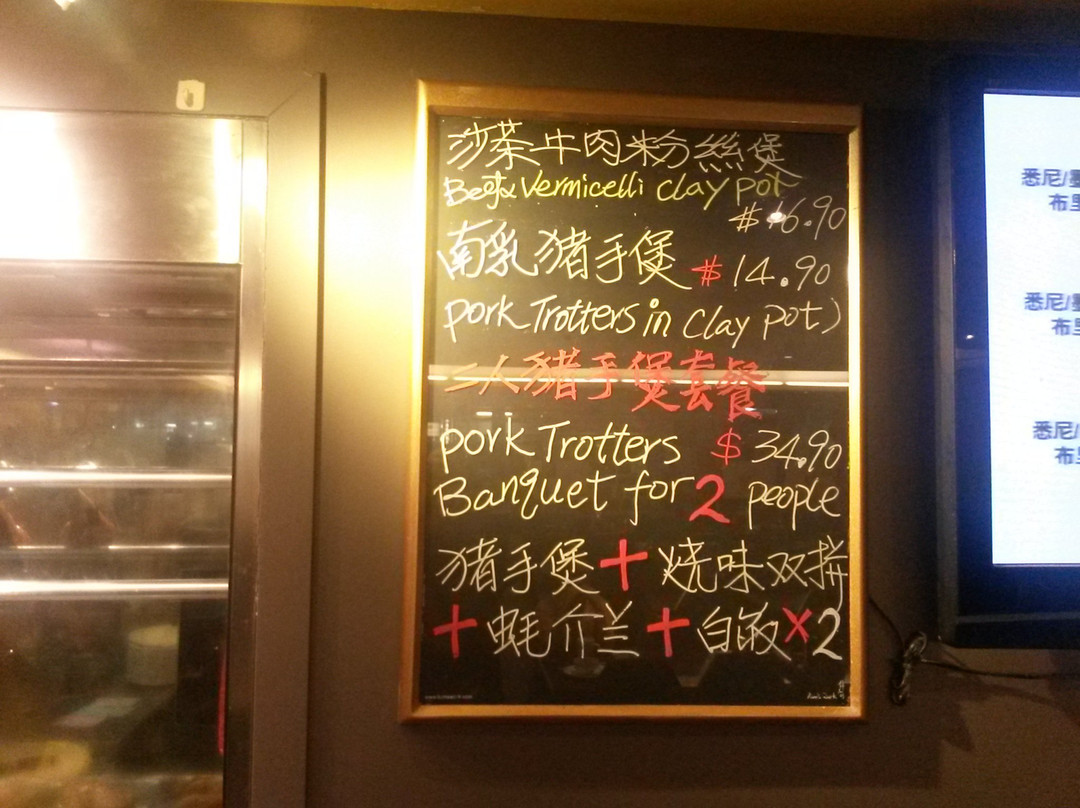 沙茶牛肉粉絲煲
Beef & Vermicelli Clay pot
$16.90
南乳猪手煲 $14.90
pork Trotters in Clay pot)
二人猪手煲套餐
pork Trotters $34.90
Banquet for 2 people
猪手煲+烧味双拼
+蚝介兰+白饭×2
悉尼/墨
布里
悉尼/墨
布里
悉尼/
布里